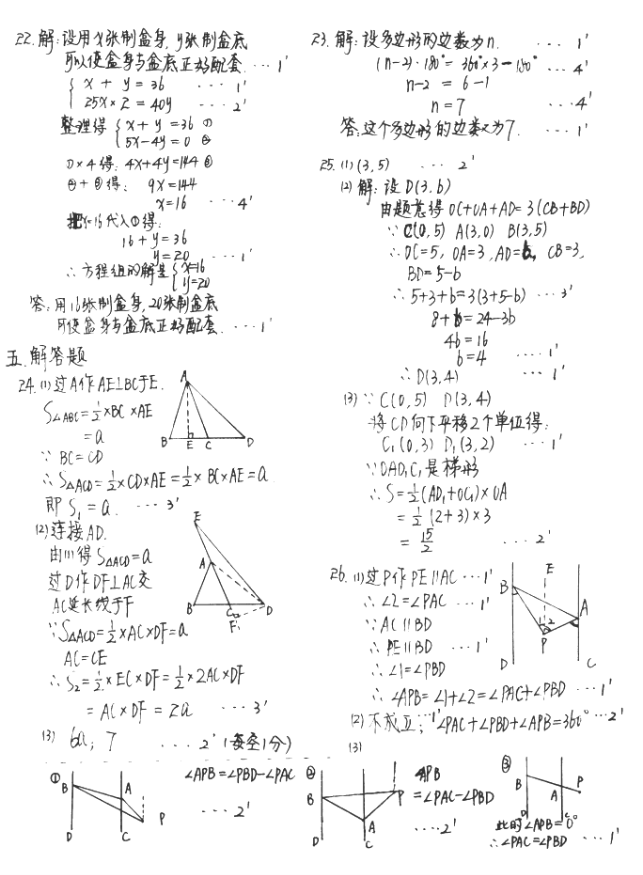 22. 解: 设用x张制盒身, y张制盒底
可以使盒身与盒底正好配套. ··· 1'
{ x + y = 36 ··· 1'
25x×2 = 40y ··· 2'
整理得 { x + y = 36 ①
5x-4y = 0 ②
①×4得: 4x+4y=144 ③
②+③得: 9x=144
x=16 ··· 4'
把x=16代入①得:
16 + y = 36
y = 20 ··· 1'
∴ 方程组的解是 { x=16
y=20
答: 用16张制盒身, 20张制盒底
可使盒身与盒底正好配套. ··· 1'
五. 解答题
24. (1) 过A作AE⊥BC于E.
S△ABC = 1/2×BC×AE
= a
∵ BC=CD
∴ S△ACD = 1/2×CD×AE = 1/2×BC×AE = a
即 S₁ = a. ··· 3'
A
B E C D
(2) 连接AD.
由(1)得 S△ACD = a
过D作DF⊥AC交
AC延长线于F
∵ S△ACD = 1/2×AC×DF = a
AC=CE
∴ S₂ = 1/2×EC×DF = 1/2×2AC×DF
= AC×DF = 2a ··· 3'
E
A
B C D
F
(3) 6a; 7 ··· 2' (每空1分)
23. 解: 设多边形的边数为n. ··· 1'
(n-2)·180° = 360°×3-180° ··· 4'
n-2 = 6-1
n = 7 ··· 4'
答: 这个多边形的边数为7. ··· 1'
25. (1) (3,5) ··· 2'
(2) 解: 设D(3,b)
由题意得 OC+OA+AD=3(CB+BD)
∵ C(0,5) A(3,0) B(3,5)
∴ OC=5, OA=3, AD=b, CB=3,
BD=5-b
∴ 5+3+b=3(3+5-b) ··· 3'
8+b=24-3b
4b=16
b=4 ··· 1'
∴ D(3,4) ··· 1'
(3) ∵ C(0,5) D(3,4)
将CD向下平移2个单位得:
C₁(0,3) D₁(3,2) ··· 1'
∵ OAD₁C₁是梯形
∴ S=1/2(AD₁+OC₁)×OA
= 1/2(2+3)×3
= 15/2 ··· 2'
26. (1) 过P作PE∥AC ··· 1'
∴ ∠2=∠PAC ··· 1'
∵ AC∥BD
∴ PE∥BD ··· 1'
∴ ∠1=∠PBD
∴ ∠APB=∠1+∠2=∠PAC+∠PBD ··· 1'
E
B A
1 2
P
D C
(2) 不成立; 1' ∠PAC+∠PBD+∠APB=360° ··· 2'
(3)
① B A P D C
∠APB=∠PBD-∠PAC
··· 2'
② B P A D C
∠APB
=∠PAC-∠PBD
··· 2'
③ B P A D C
此时∠APB=0°
∴ ∠PAC=∠PBD ··· 1'